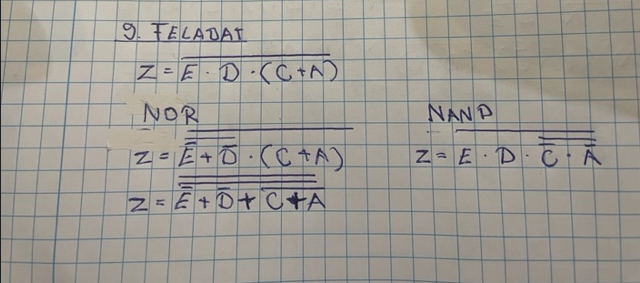 9. FELADAT
Z = E · D · (C+A)
NOR
Z = E + D · (C+A)
Z = E + D + C + A
NAND
Z = E · D · C · A